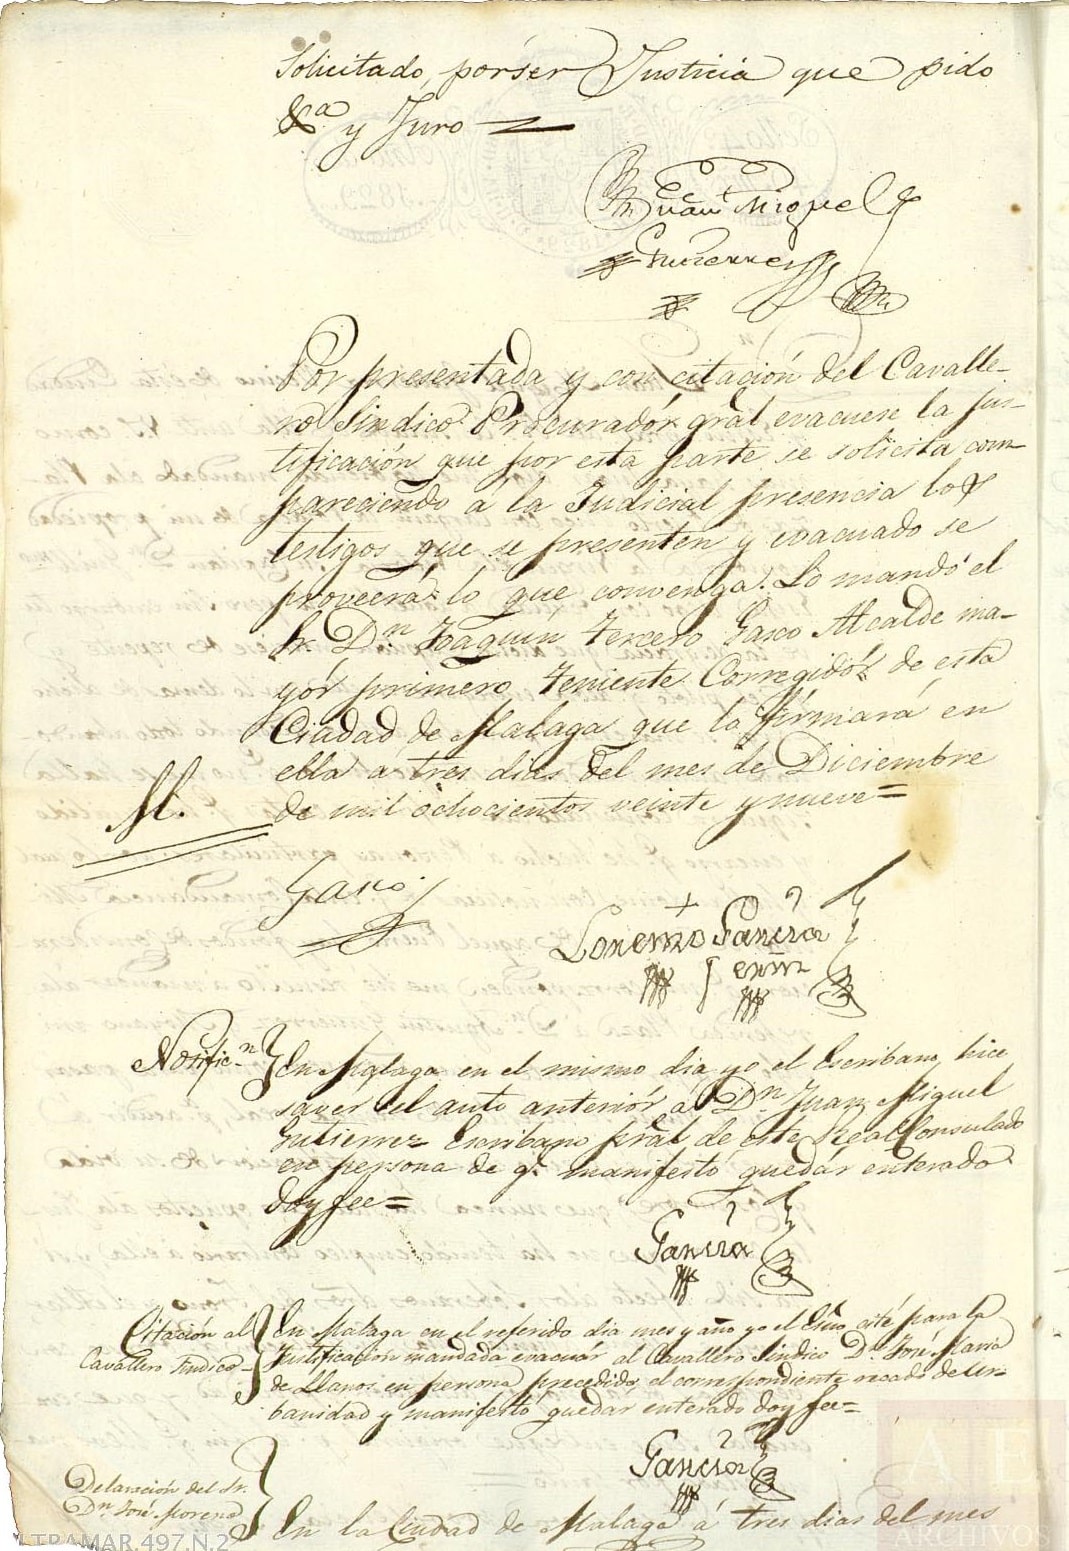 Solicitado, por ser Justicia que pido
&ª y Juro
Juan Miguel
Gutierrez
Por presentada y con citación del Cavalle-
ro Sindico Procuradór gral evacuese la jus-
tificación que por esta parte se solicita com-
pareciendo á la Judicial presencia los
testigos que se presenten y evacuado se
proveerá lo que convenga. Lo mandó el
Sr. Dn. Joaquin Tercero Gasco Alcalde ma-
yór primero Teniente Corregidór de esta
Ciudad de Malaga que lo firmará en
ella a tres dias del mes de Diciembre
de mil ochocientos veinte y nueve=
M.
Gasco
Lorenzo Garcia
Notificn. En Malaga en el mismo dia yo el Escribano, hice
saver el auto anteriór á Dn. Juan Miguel
Gutierrez Escribano pral de este Real Consulado
en persona de q. manifestó quedár enterado
doy fee=
Garcia
Citación al
Cavallero Sindico
En Malaga en el referido dia mes y año yo el Esno cité para la
Justificación mandada evacuár al Cavallero Sindico Dn. José Maria
de Llanos en persona precedido el correspondiente recado de ur-
banidad y manifestó quedar enterado doy fee=
Garcia
Delaración del Sr.
Dn. José Moreno
En la Ciudad de Malaga á tres dias del mes
ULTRAMAR,497,N.2
AE
ARCHIVOS